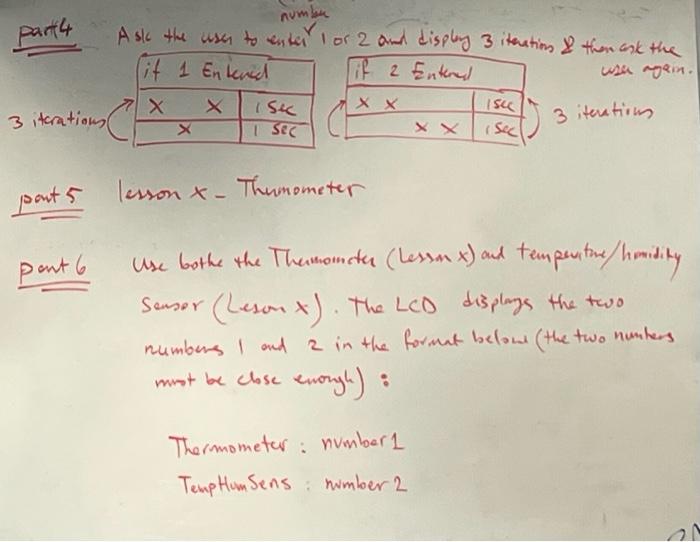 number
part4 Ask the user to enter 1 or 2 and display 3 iterations & then ask the
user again.
if 1 Entered if 2 Entered
x x 1 sec x x 1 sec
3 iterations 3 iterations
x 1 sec x x 1 sec
part 5 lesson x - Thermometer
part 6 Use bothe the Thermometer (Lesson x) and temperature/humidity
Sensor (Lesson x). The LCD displays the two
numbers 1 and 2 in the format below (the two numbers
must be close enough) :
Thermometer : number 1
TempHumSens : number 2